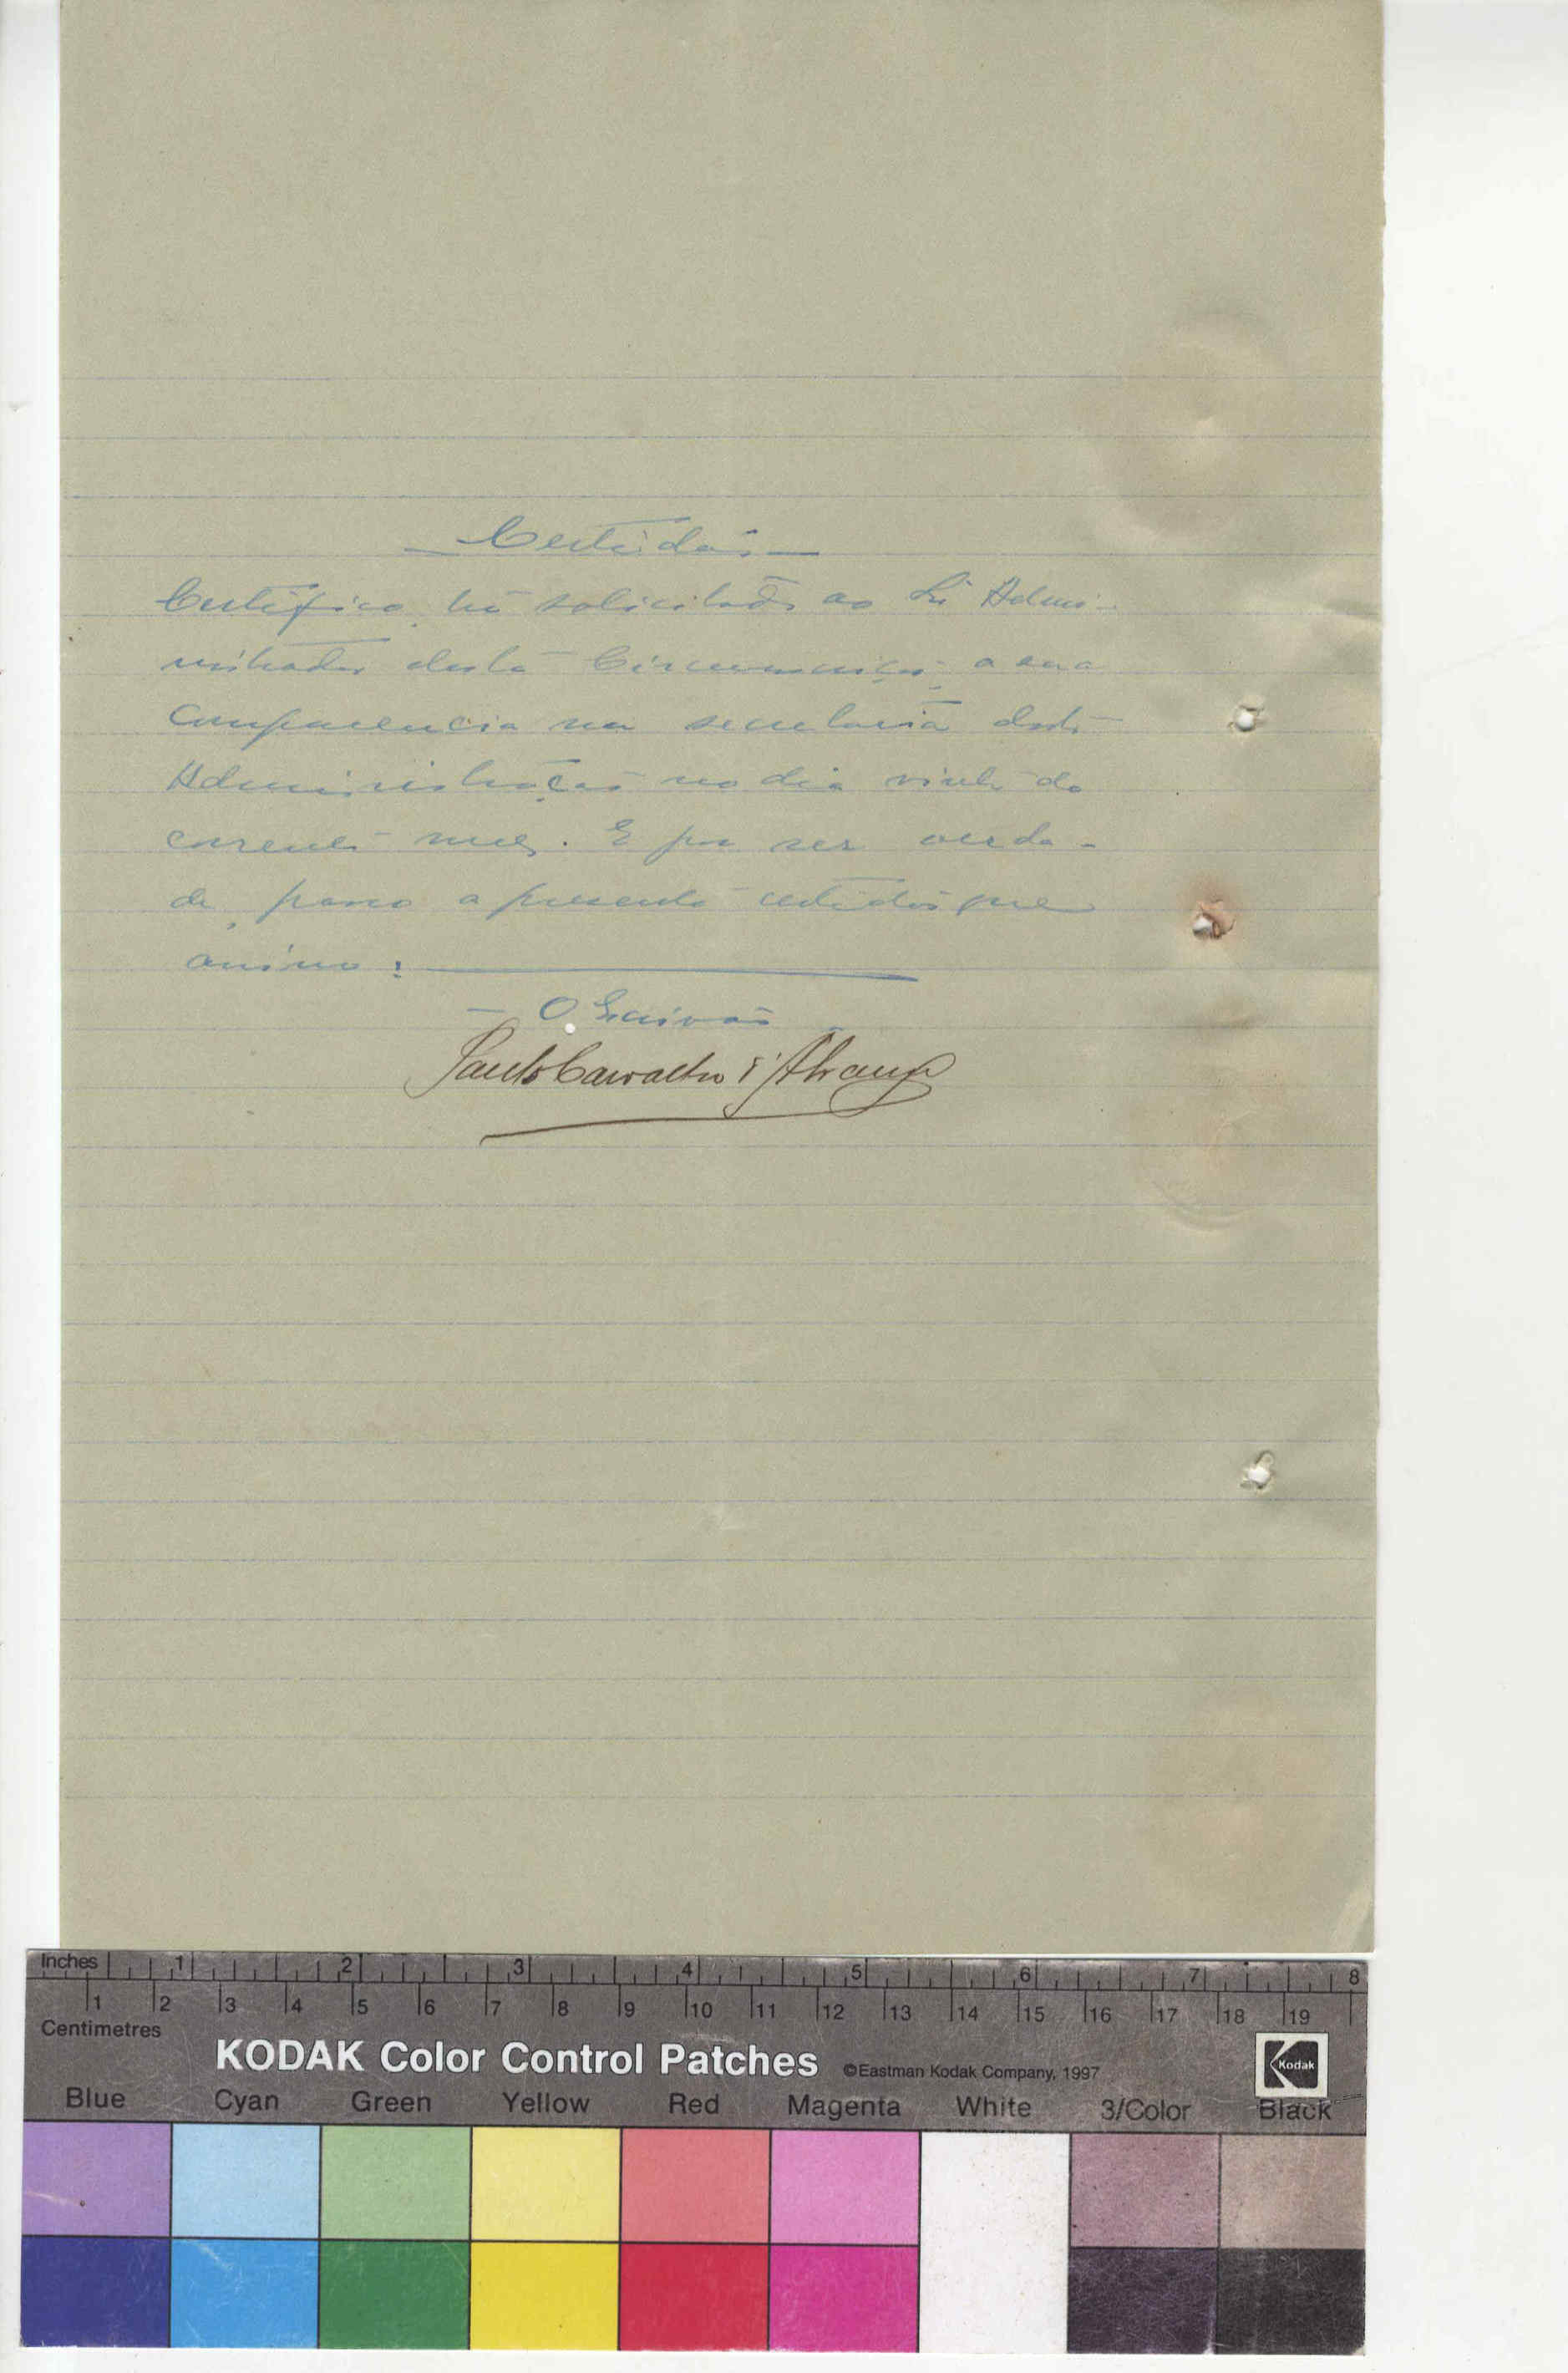 Certidão
Certifico ter solicitado ao Sr Admi-
nistrador desta Circunscrição a sua
comparencia na secretaria desta
Administração no dia vinte do
corrente mez. E por ser verda-
de, passo a presente certidão que
assino:
O Escrivão
Paulo Carvalho
Inches 1 2 3 4 5 6 7 8
1 2 3 4 5 6 7 8 9 10 11 12 13 14 15 16 17 18 19
Centimetres
KODAK Color Control Patches ©Eastman Kodak Company, 1997 Kodak
Blue Cyan Green Yellow Red Magenta White 3/Color Black